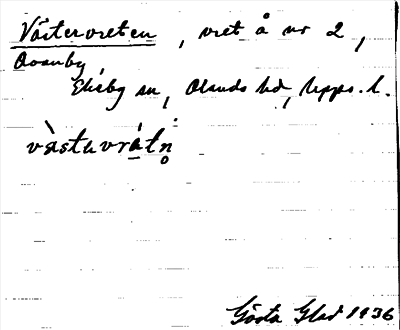 Västervreten, vret å nr 2,
Åsunby,
Ekeby sn, Olands hd, Upps. l.
västavrätn
Gösta Glad 1936